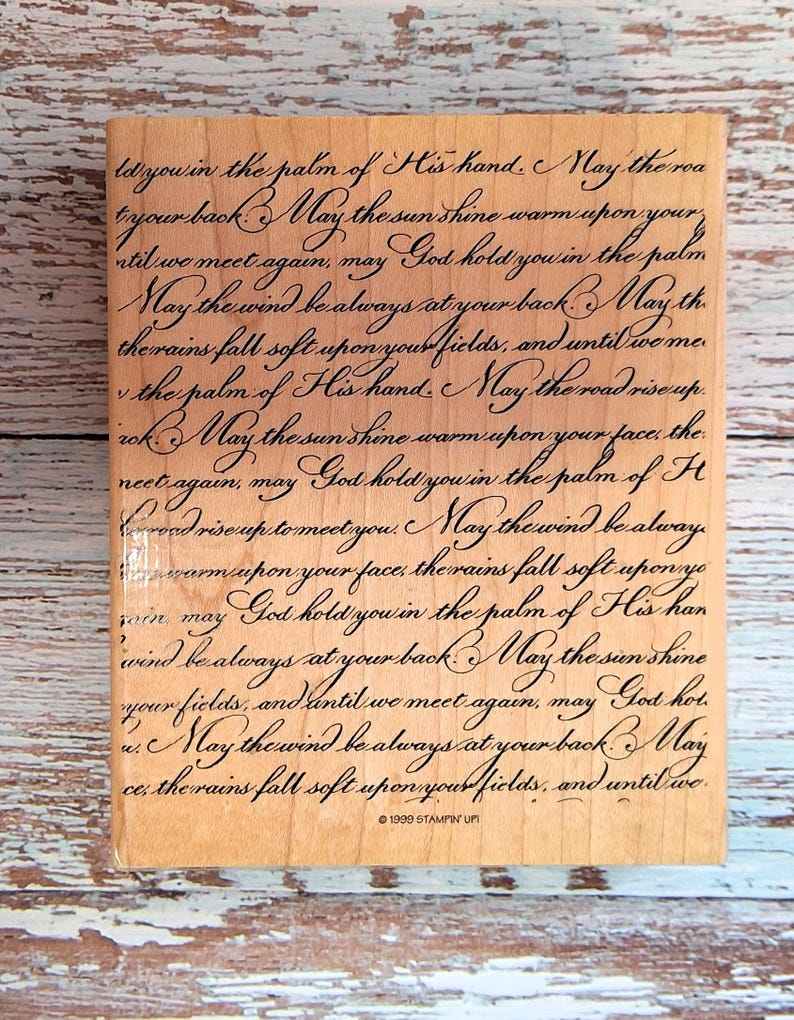 ld you in the palm of His hand. May the roa
t your back. May the sun shine warm upon your
ntil we meet again, may God hold you in the palm
May the wind be always at your back. May th
the rains fall soft upon your fields, and until we me
the palm of His hand. May the road rise up
ack. May the sun shine warm upon your face, the
meet again, may God hold you in the palm of H
he road rise up to meet you. May the wind be alway
ine warm upon your face, the rains fall soft upon yo
gain, may God hold you in the palm of His han
wind be always at your back. May the sun shine
your fields, and until we meet again, may God hol
u. May the wind be always at your back. May
ce, the rains fall soft upon your fields, and until we
© 1999 STAMPIN' UP!